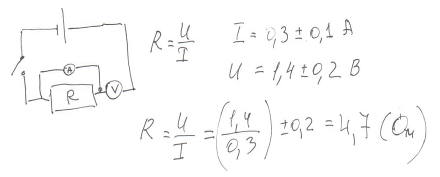 A
R
V
R = U/I
I = 0,3 ± 0,1 A
U = 1,4 ± 0,2 В
R = U/I = (1,4/0,3) ± 0,2 = 4,7 (Ом)